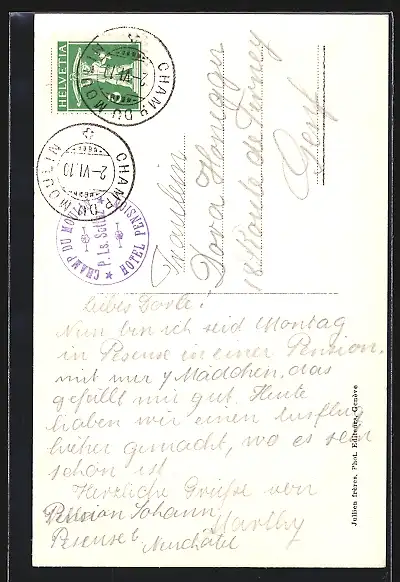 HELVETIA
CHAMP DU MOULIN
CHAMP DU MOULIN
2-VI.10
CHAMP DU MO
P. Ls. Sch
HOTEL PENSION
Fräulein
Dora Honegger
18 Route de Ferney
Genf
Liebes Dorli!
Nun bin ich seid Montag
in Peseuse in einer Pension,
mit nur 7 Mädchen, das
gefällt mir gut. Heute
haben wir einen Ausflug
hieher gemacht, wo es sehr
schön ist
Herzliche Grüsse von
Pension Johann
Peseuse
Neuchâtel
Jullien frères, Phot. Editeurs, Genève